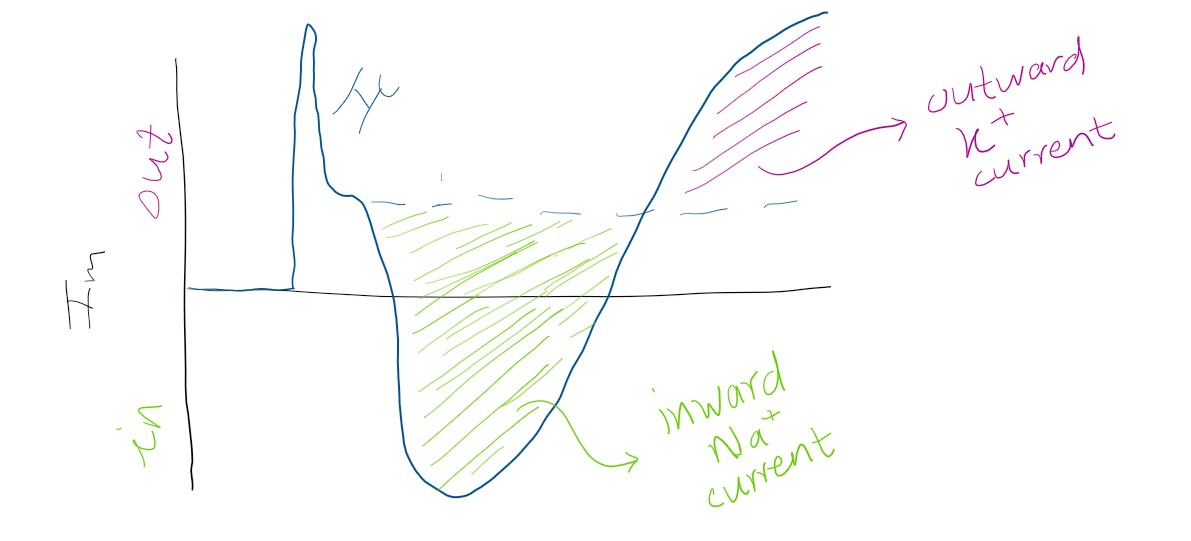 out
Im
in
Ic
outward
K+
current
inward
Na+
current